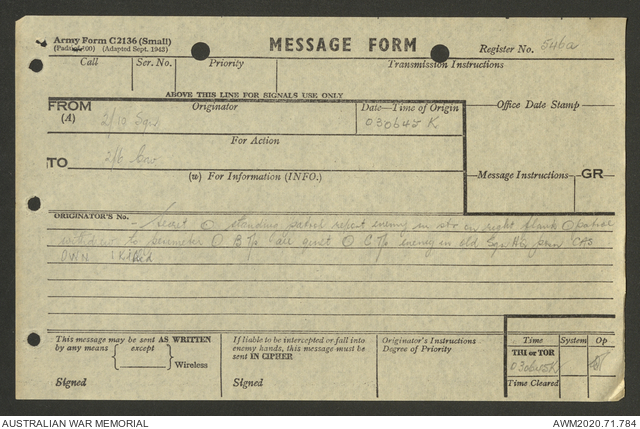 Army Form C2136 (Small)
(Pads of 100) (Adapted Sept. 1943)
MESSAGE FORM
Register No. 546a
Call Ser. No. Priority Transmission Instructions
ABOVE THIS LINE FOR SIGNALS USE ONLY
FROM (A) Originator Date—Time of Origin Office Date Stamp
2/10 Sqn 030645 K
For Action
TO 2/6 Cav
(w) For Information (INFO.) Message Instructions GR
ORIGINATOR'S No.
standing patrol report enemy in str on right flank O patrol
withdrawn to perimeter O B Tp all quiet O C Tp enemy in old Sqn HQ CAS
OWN 1 Killed
This message may be sent AS WRITTEN
by any means except
Wireless
Signed
If liable to be intercepted or fall into
enemy hands, this message must be
sent IN CIPHER
Signed
Originator's Instructions
Degree of Priority
Time System Op
THI or TOR
030645K
Time Cleared
AUSTRALIAN WAR MEMORIAL AWM2020.71.784